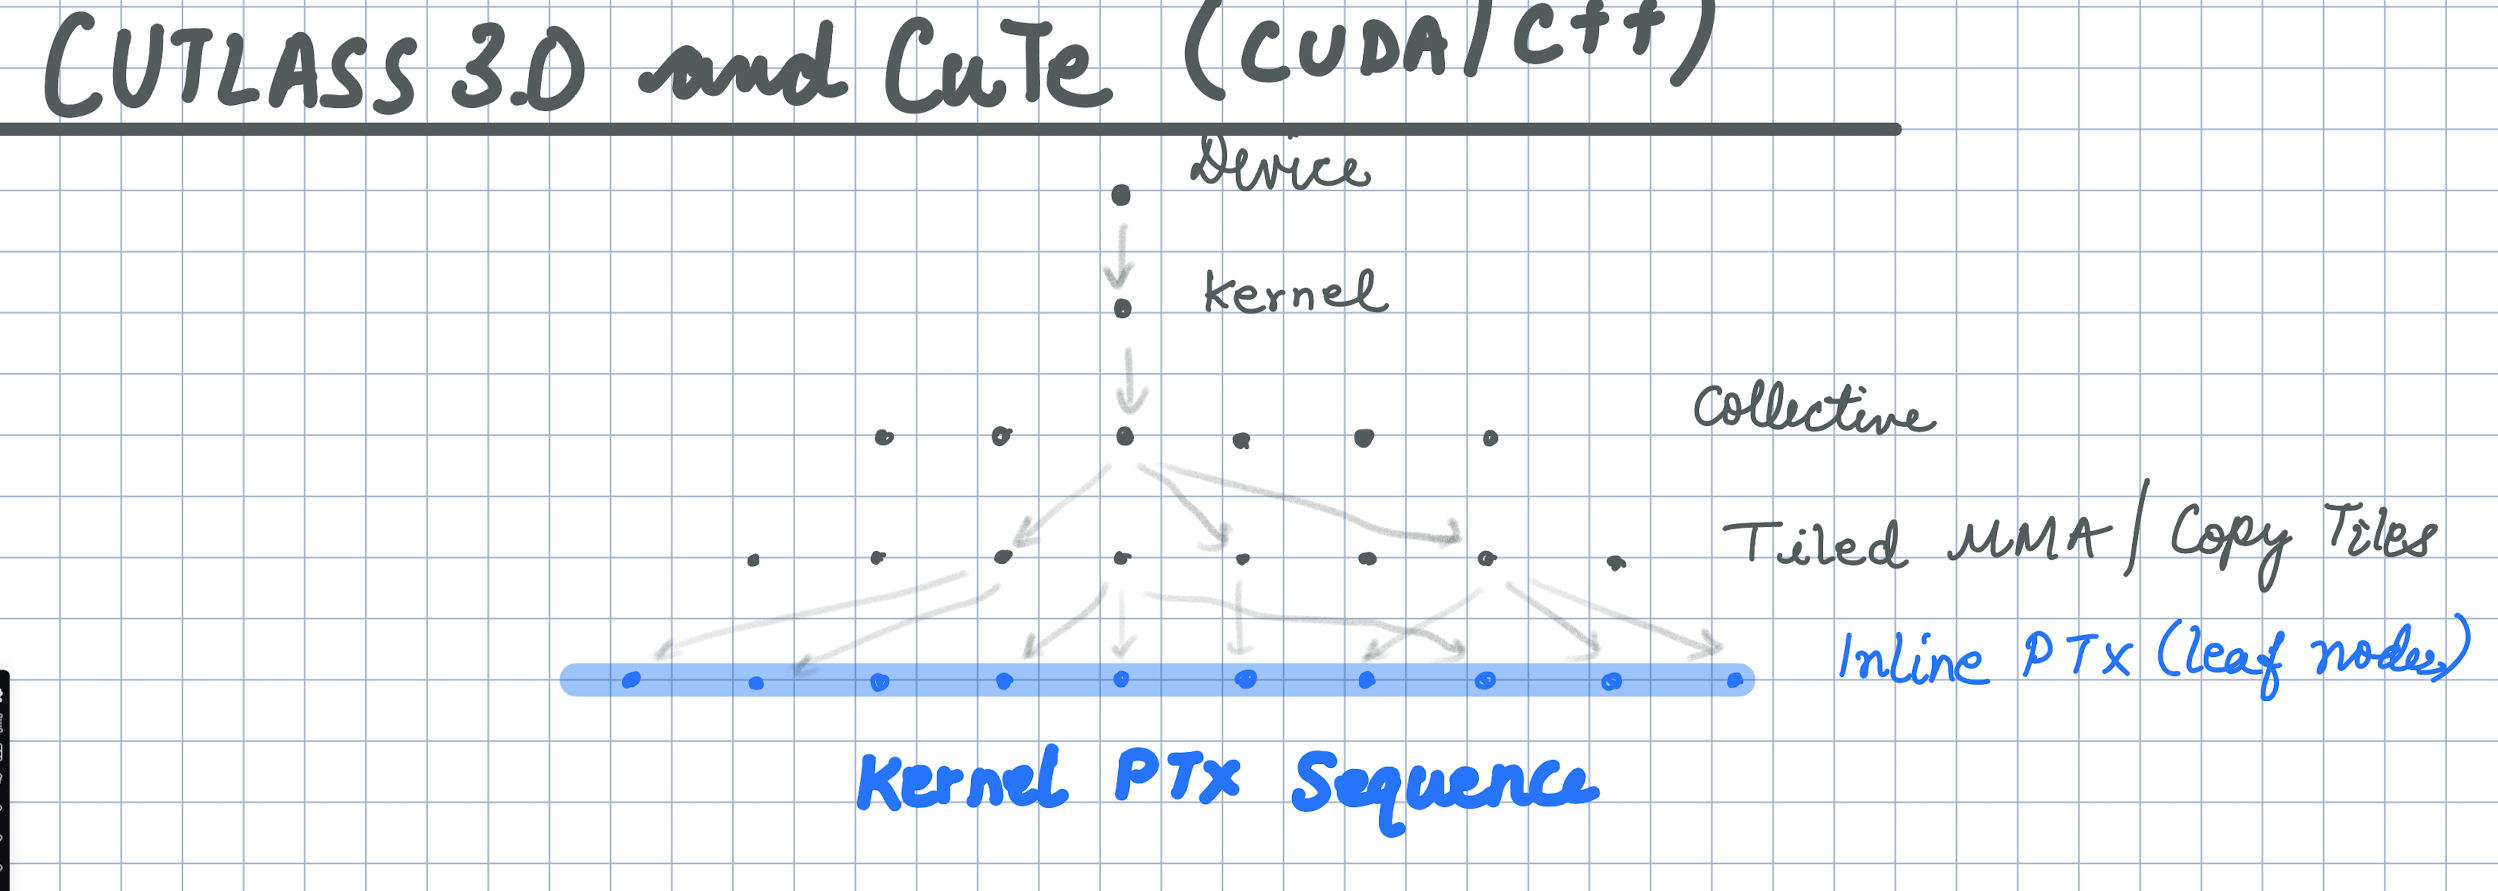 CUTLASS 3.0 and CuTe (CUDA/C++)
Device
Kernel
Collective
Tiled MMA/Copy Tiles
Inline PTX (leaf nodes)
Kernel PTX Sequence